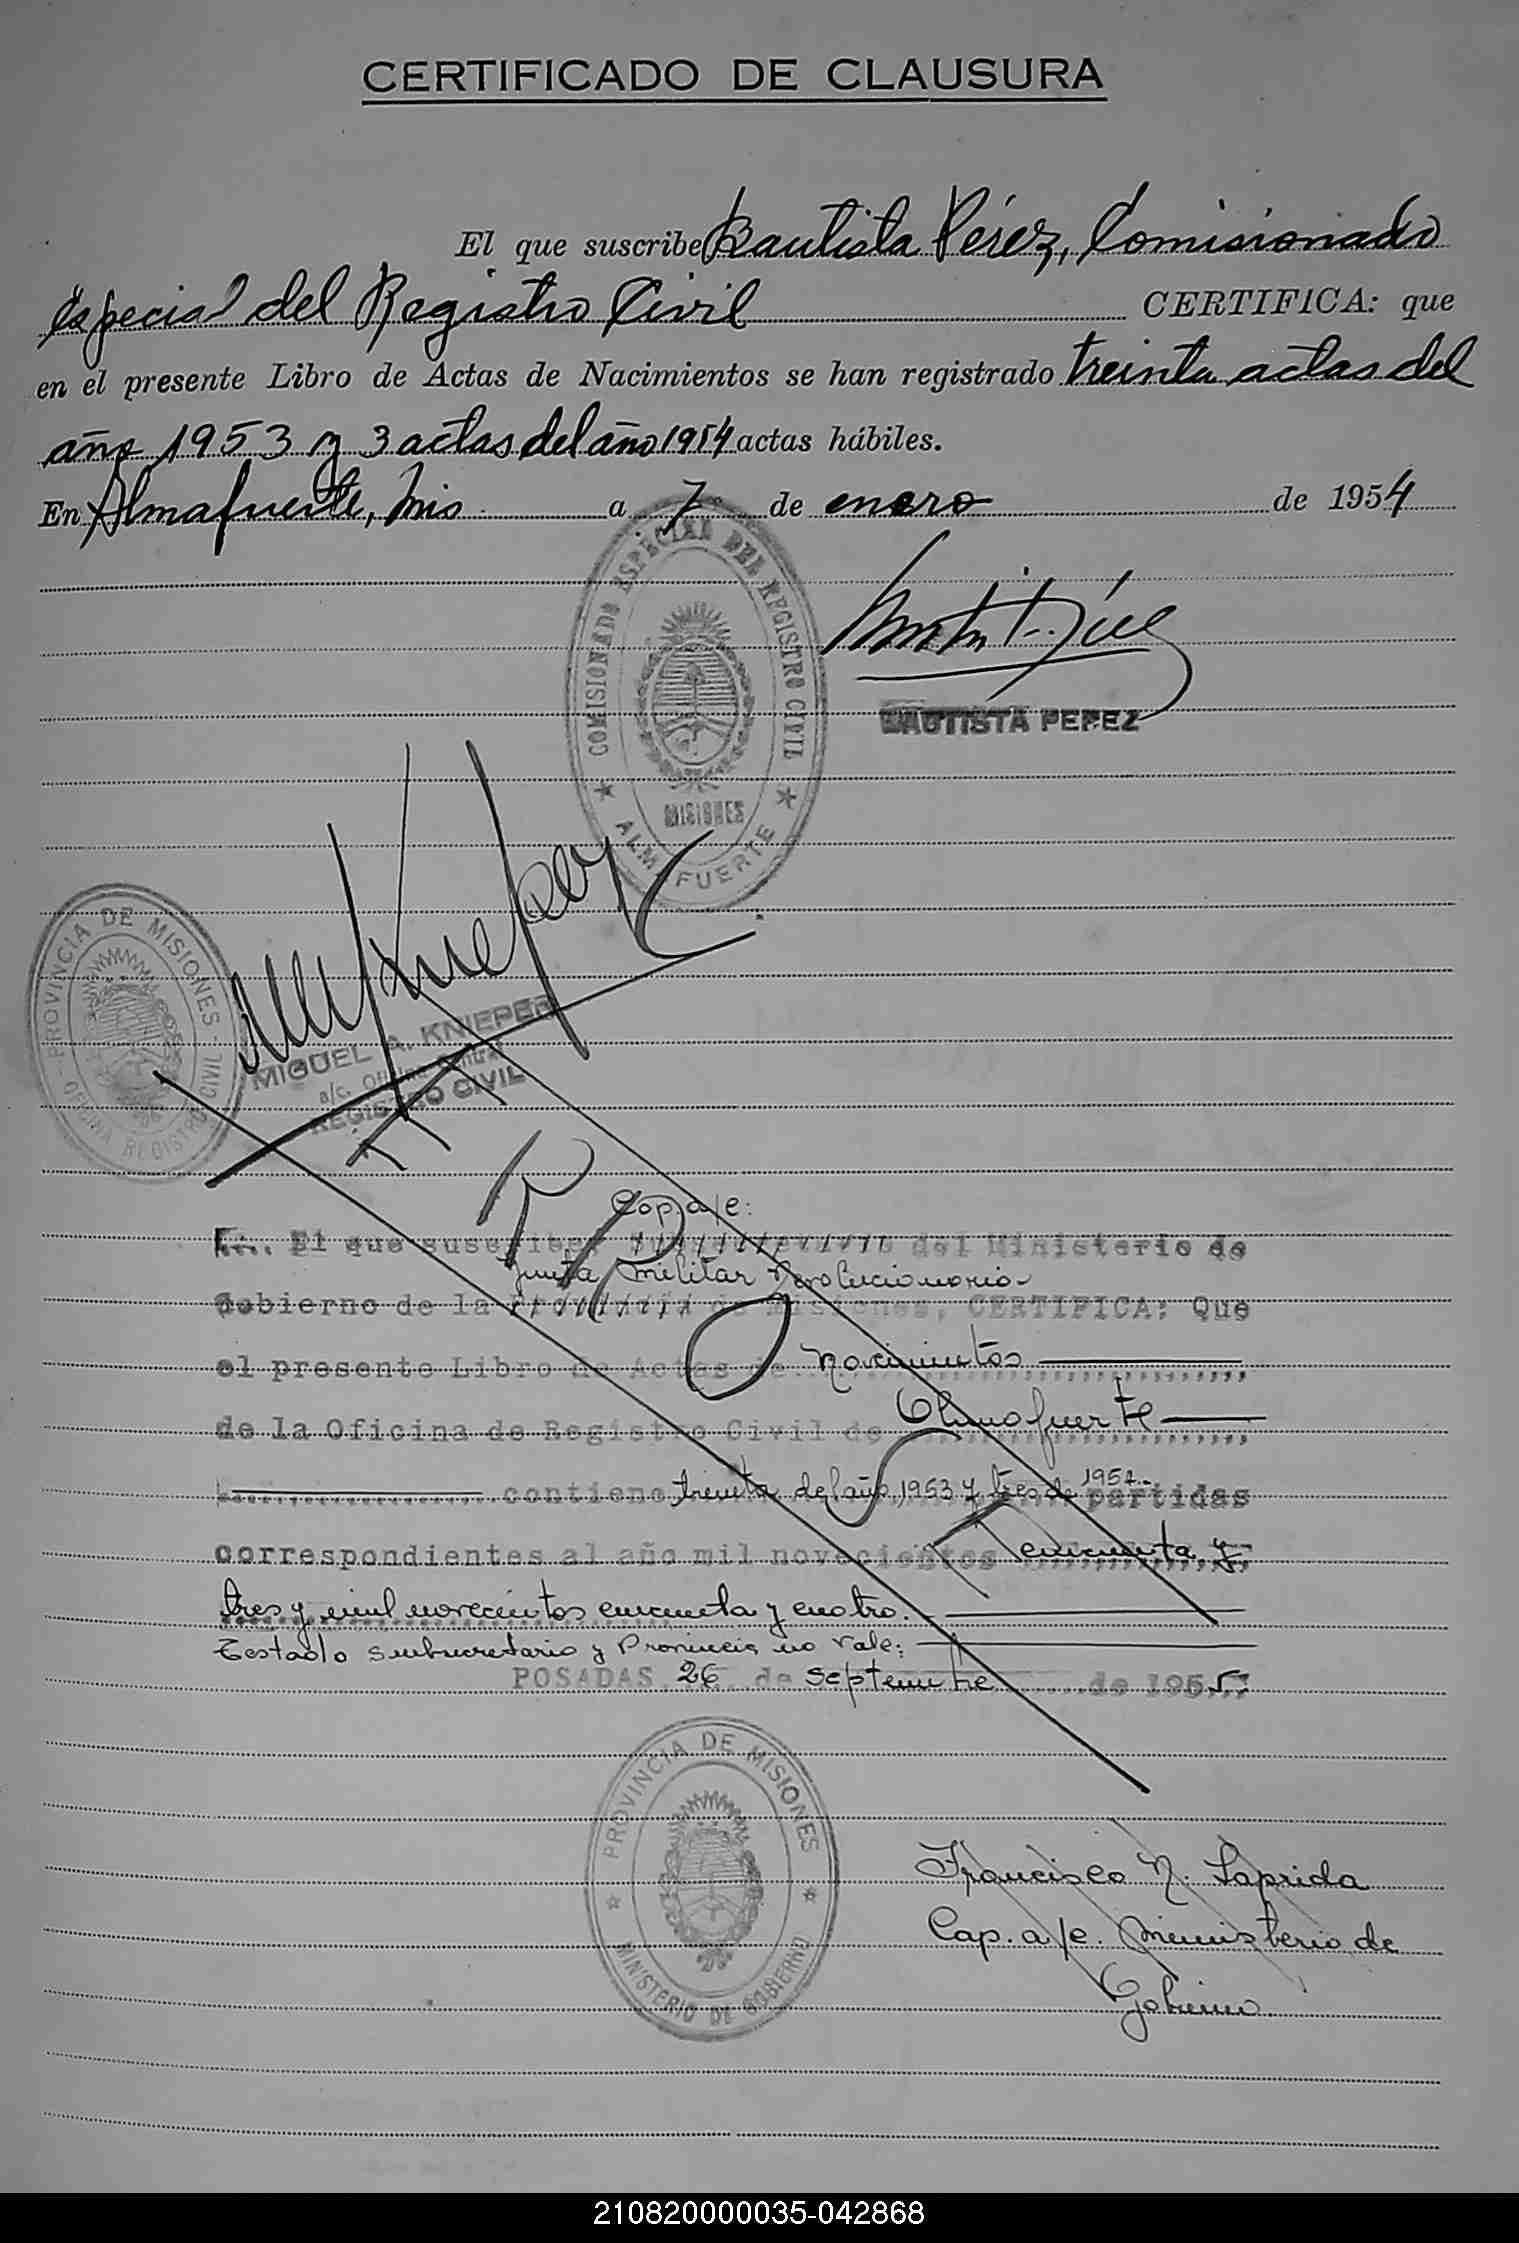 CERTIFICADO DE CLAUSURA
El que suscribe Bautista Pérez, Comisionado
especial del Registro Civil CERTIFICA: que
en el presente Libro de Actas de Nacimientos se han registrado treinta actas del
año 1953 y 3 actas del año 1954 actas hábiles.
En Almafuerte, Mis a 7 de enero de 1954
COMISIONADO ESPECIAL DEL REGISTRO CIVIL
MISIONES
ALMAFUERTE
BAUTISTA PEREZ
PROVINCIA DE MISIONES
OFICINA REGISTRO CIVIL
MIGUEL A. KNIEPER
a/c. Oficina Central
REGISTRO CIVIL
Cap. a/e:
El que suscribe, del Ministerio de
Junta Militar Revolucionario
Gobierno de la Provincia de Misiones, CERTIFICA: Que
el presente Libro de Actas de Nacimientos
de la Oficina de Registro Civil de Almafuerte
contiene treinta del año 1953 y tres de 1954 partidas
correspondientes al año mil novecientos cincuenta y
tres y mil novecientos cincuenta y cuatro.
Testado Subsecretario y Provincia no vale:
POSADAS 26 de Septiembre de 1955
PROVINCIA DE MISIONES
MINISTERIO DE GOBIERNO
Francisco N. Laprida
Cap. a/e. Ministerio de
Gobierno
210820000035-042868